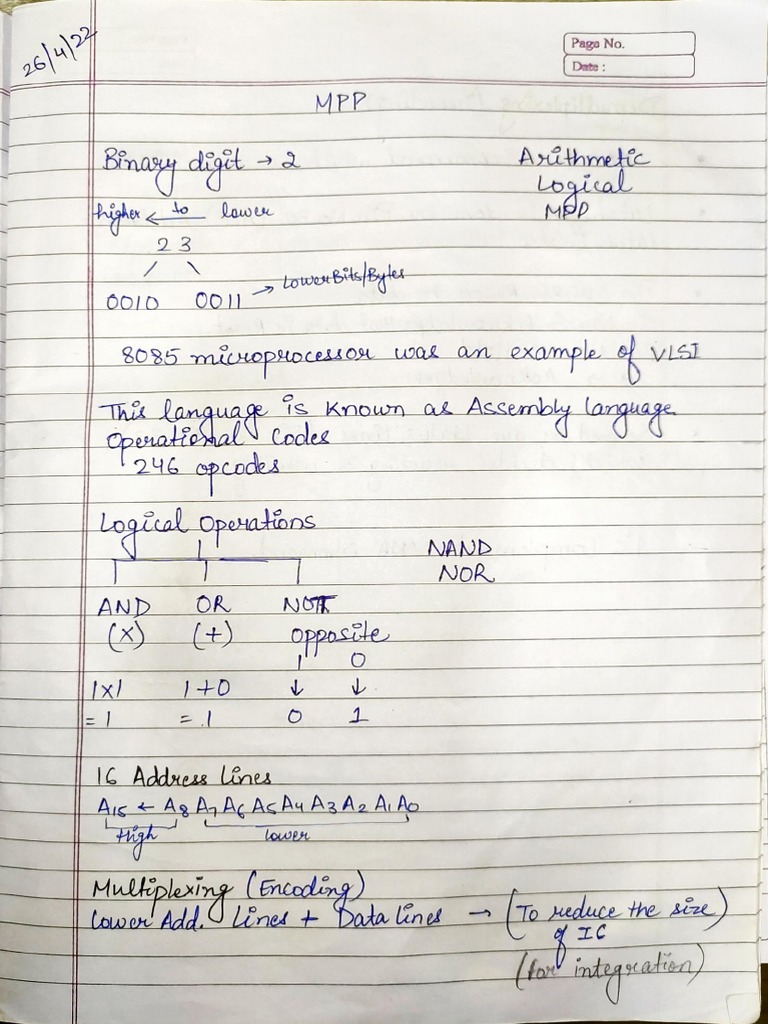 26/4/22
Page No.
Date :
MPP
Binary digit → 2
Arithmetic
Logical
MPP
higher ← to lower
2 3
0010 0011 → Lower Bits/Bytes
8085 microprocessor was an example of VLSI
This language is known as Assembly language
Operational Codes
246 opcodes
Logical Operations
NAND
NOR
AND OR NOT
(×) (+) opposite
1 0
1×1 1+0 ↓ ↓
= 1 = 1 0 1
16 Address Lines
A15 ← A8 A7 A6 A5 A4 A3 A2 A1 A0
High lower
Multiplexing (Encoding)
Lower Add. Lines + Data lines → (To reduce the size)
of IC
(for integration)